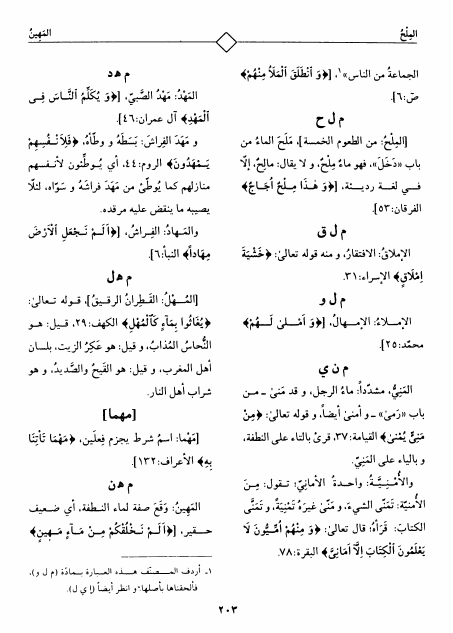 المِلْحُ
المَهِينُ
الجماعةُ من الناس»١، [﴿وَ ٱنْطَلَقَ ٱلْمَلَأُ مِنْهُمْ﴾
صۤ:٦].
م ل ح
المِلْحُ: من الطعوم الخمسة]، مَلَحَ الماءُ من
باب «دَخَلَ»، فهو ماءٌ مِلْحٌ، و لا يقال: مالِحٌ، إلّا
في لغة رديئة، [﴿وَ هٰذَا مِلْحٌ أُجَاجٌ﴾
الفرقان:٥٣].
م ل ق
الإملاقُ: الافتقارُ، و منه قوله تعالىٰ: ﴿خَشْيَةَ
إِمْلَاقٍ﴾ الإسراء:٣١.
م ل و
الإملاءُ: الإمهالُ، [﴿وَ أَمْلىٰ لَـهُمْ﴾
محمّد:٢٥].
م ن ي
المَنِيُّ، مشدّداً: ماءُ الرجل، و قد مَنىٰ ـ من
باب «رَمىٰ» ـ و أمنىٰ أيضاً، و قوله تعالىٰ: ﴿مِنْ
مَنِيٍّ يُمْنىٰ﴾ القيامة:٣٧، قرئ بالتاء على النطفة،
و بالياء على المَنِيّ.
والأُمْنِيَّةُ: واحدةُ الأمانِيّ؛ تقول: مِنَ
الأُمنيّة: تَمَنَّى الشيءَ، و مَنّىٰ غيرَهُ تَمْنِيَةً، و تَمَنَّى
الكتابَ: قَرَأهُ؛ قال تعالىٰ: ﴿وَ مِنْهُمْ أُمِّيُّونَ لَا
يَعْلَمُونَ ٱلْكِتَابَ إِلَّا أَمَانِيَّ﴾ البقرة:٧٨.
م ه د
المَهْدُ: مَهْدُ الصَّبيّ، [﴿وَ يُكَلِّمُ ٱلنَّاسَ فِي
ٱلْمَهْدِ﴾ آل عمران:٤٦].
و مَهَدَ الفِراشَ: بَسَطَهُ و وطّأهُ، ﴿فَلِأَنْفُسِهِمْ
يَمْهَدُونَ﴾ الروم:٤٤، أي يُوطِّئون لأنفسهم
منازلهم كما يُوطِّئ من مَهَدَ فراشَهُ و سَوّاه، لئلّا
يصيبه ما ينقض عليه مرقده.
والمَـهادُ: الفِراشُ، [﴿أَلَـمْ نَجْعَلِ ٱلْأَرْضَ
مِهَاداً﴾ النبأ:٦].
م ه ل
[المُهْلُ: القَطِرانُ الرقيقُ]، قوله تعالىٰ:
﴿يُغَاثُوا بِمَاءٍ كَٱلْمُهْلِ﴾ الكهف:٢٩، قيل: هو
النُّحاسُ المُذابُ، و قيل: هو عَكِرُ الزيت، بلسان
أهل المغرب، و قيل: هو القَيحُ والصَّديدُ، و هو
شراب أهل النار.
[مهما]
[مَهْما: اسمُ شرط يجزم فعلَين، ﴿مَهْمَا تَأْتِنَا
بِهِ﴾ الأعراف:١٣٢].
م ه ن
المَهِينُ: وَقَعَ صفة لماء النـطفة، أي ضعيف
حقير، [﴿أَلَـمْ نَـخْلُقْكُمْ مِـنْ مَـاءٍ مَـهِينٍ﴾
١ـ أردف المـصنّف هـذه العـبارة بمـادّة (م ل و)،
فألحقناها بأصلها، و انظر أيضاً (إ ي ل).
٢٠٣